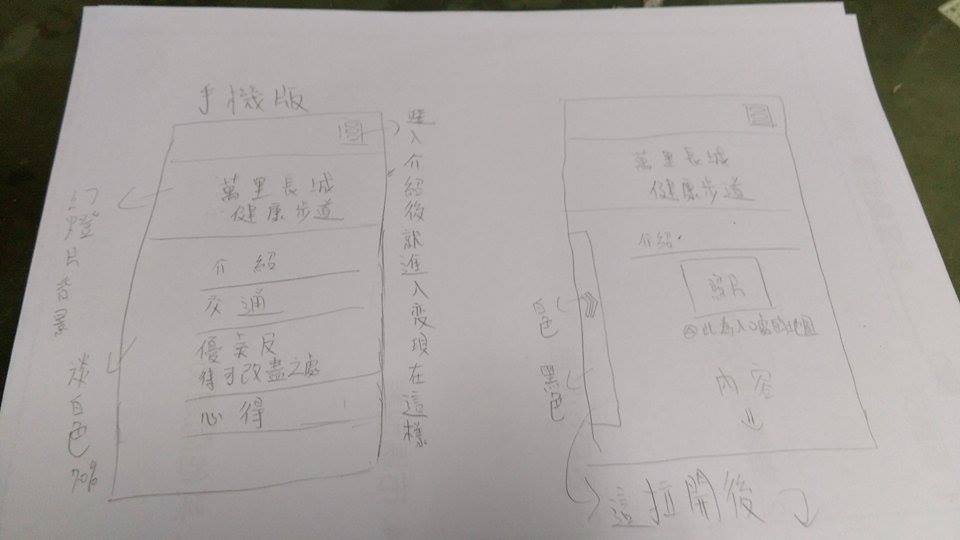 手機版
萬里長城
健康步道
介紹
交通
優美及
待可改盡之處
心得
幻燈片背景
淡白色70%
進入介紹後就進入变項在這樣
萬里長城
健康步道
介紹
照片
此為入口處的地圖
內容
白色
黑色
這拉開後